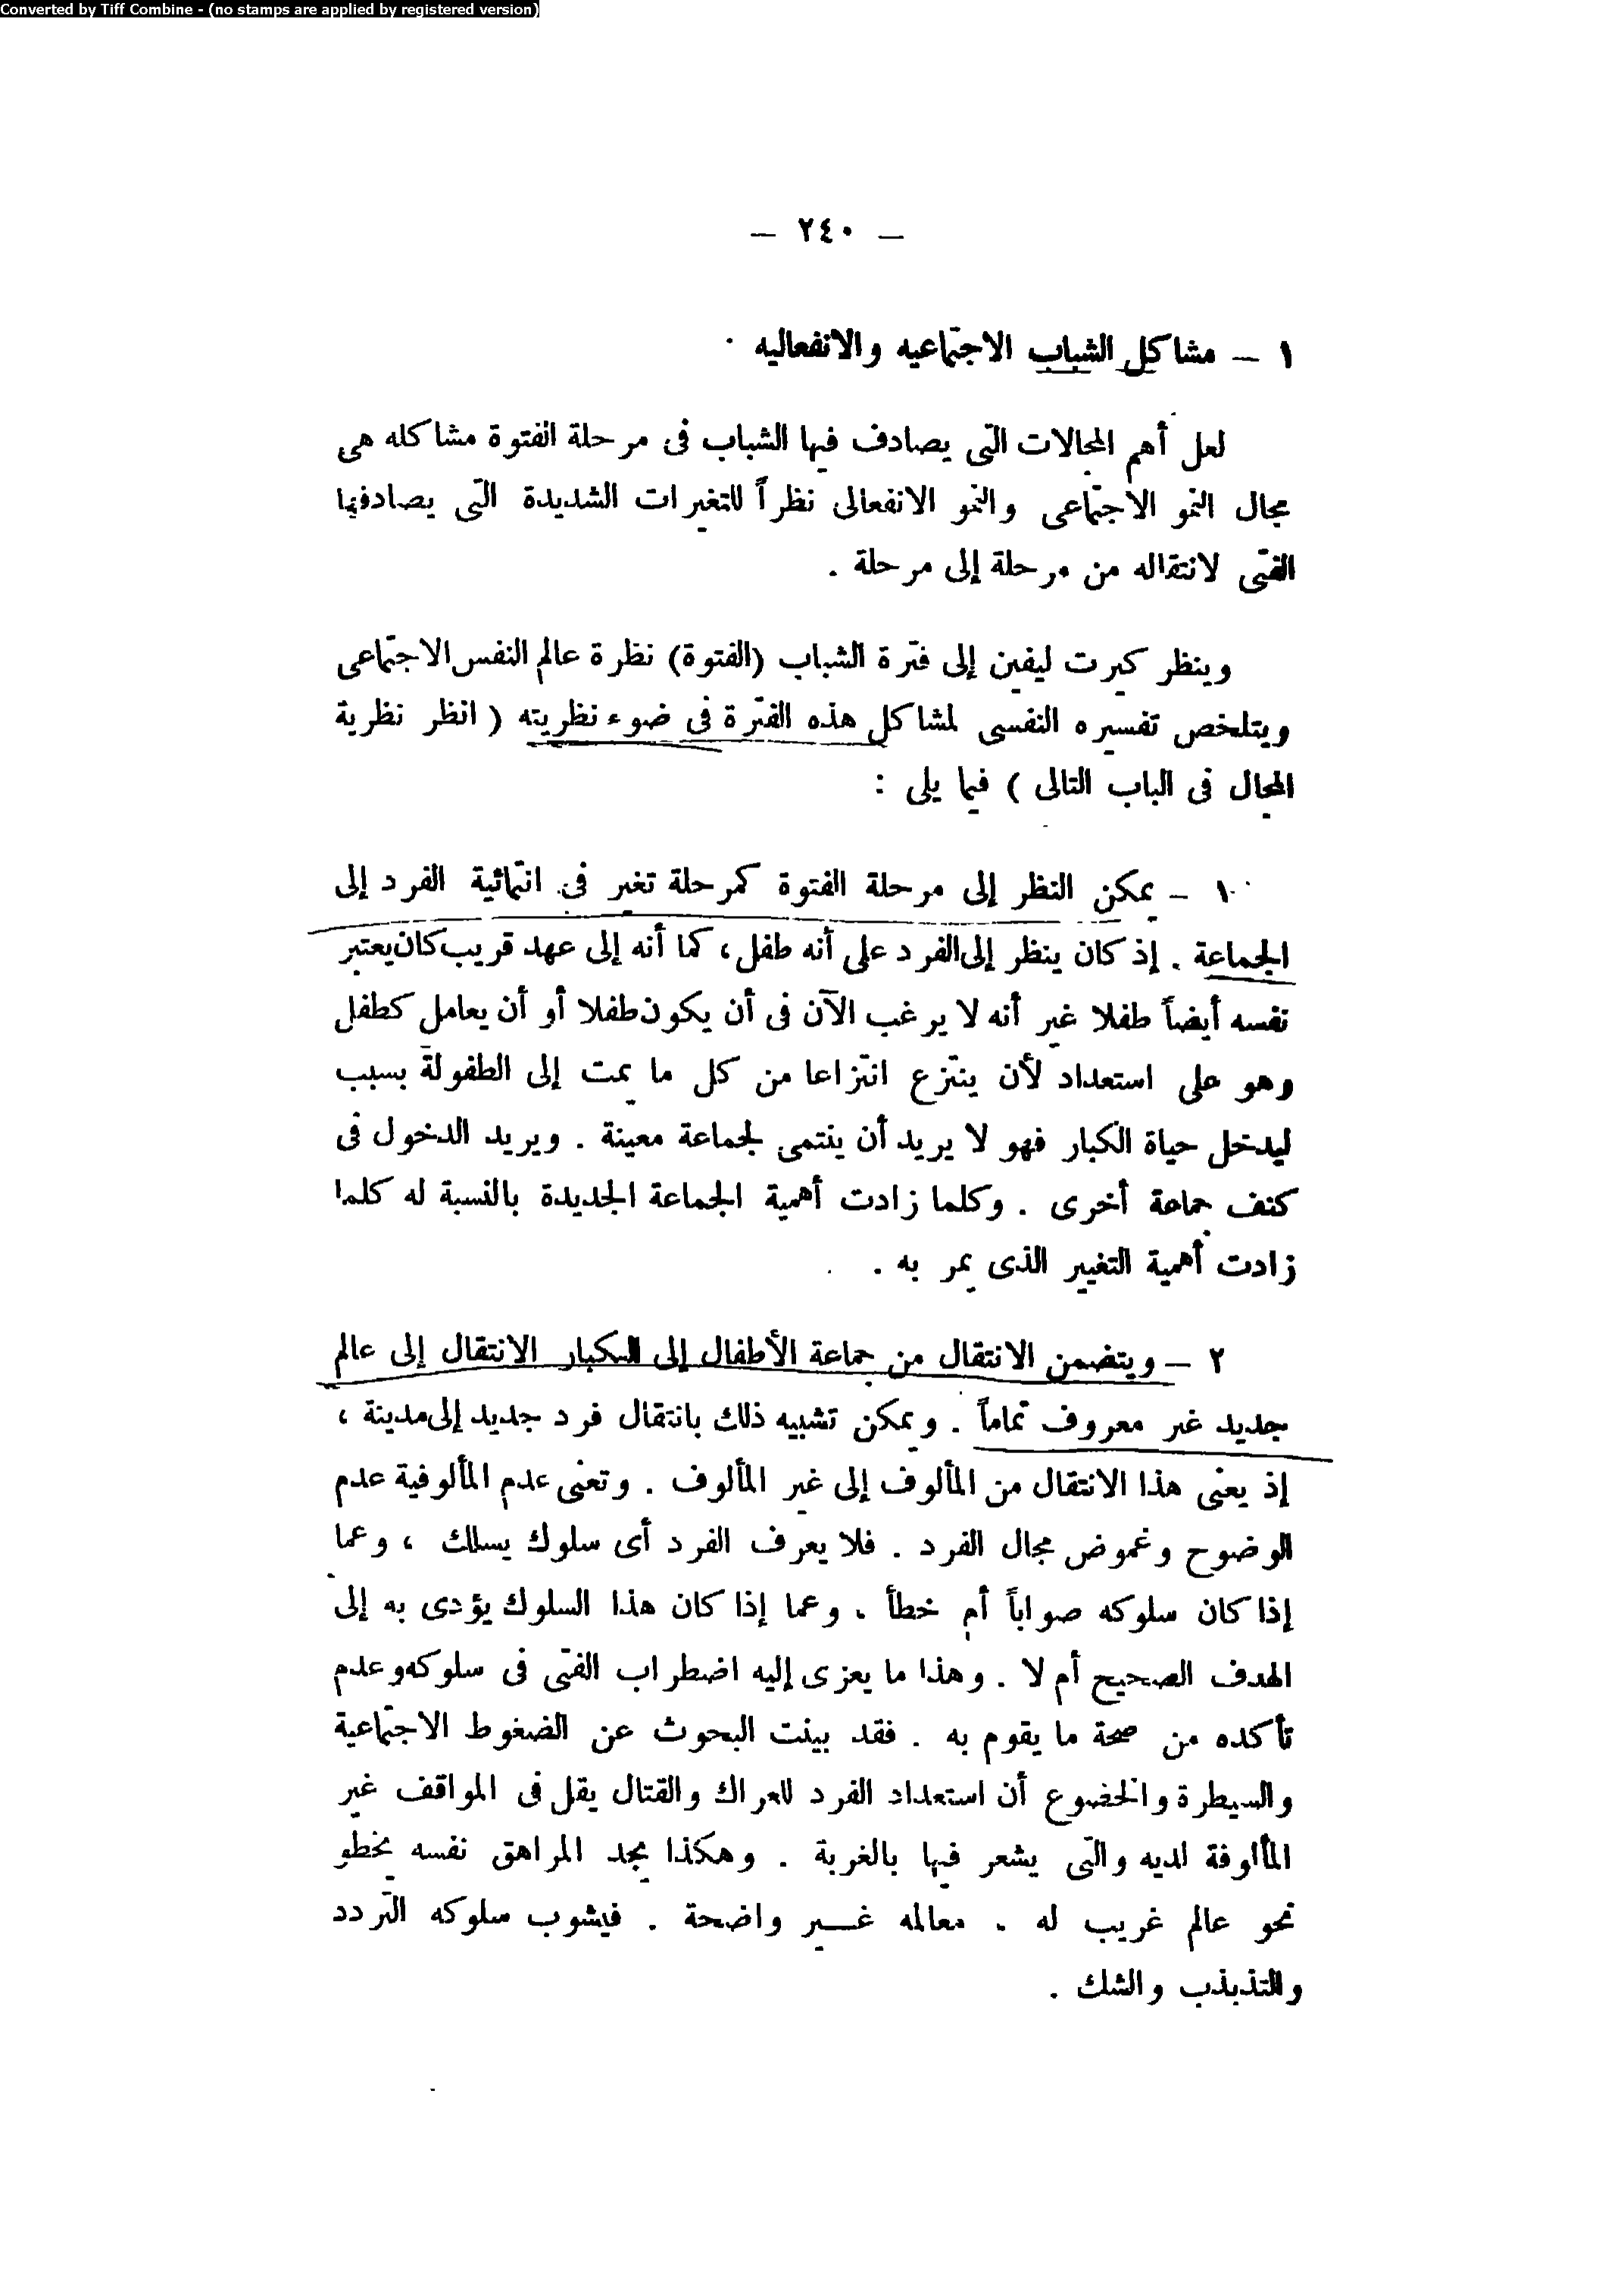 Converted by Tiff Combine - (no stamps are applied by registered version)
— ٢٤٠ —
١ — مشاكل الشباب الاجتماعيه والانفعاليه .
لعل أهم المجالات التى يصادف فيها الشباب فى مرحلة الفتوة مشاكله هى
مجال النمو الاجتماعى والنمو الانفعالى نظراً للتغيرات الشديدة التى يصادفها
الفتى لانتقاله من مرحلة إلى مرحلة .
وينظر كيرت ليفين إلى فترة الشباب (الفتوة) نظرة عالم النفس الاجتماعى
ويتلخص تفسيره النفسى لمشاكل هذه الفترة فى ضوء نظريته ( انظر نظرية
المجال فى الباب التالى ) فيما يلى :
١ - يمكن النظر إلى مرحلة الفتوة كمرحلة تغير فى انتمائية الفرد إلى
الجماعة . إذ كان ينظر إلى الفرد على أنه طفل ، كما أنه إلى عهد قريب كان يعتبر
نفسه أيضاً طفلا غير أنه لا يرغب الآن فى أن يكون طفلا أو أن يعامل كطفل
وهو على استعداد لأن ينتزع انتزاعا من كل ما يمت إلى الطفولة بسبب
ليدخل حياة الكبار فهو لا يريد أن ينتمى لجماعة معينة . ويريد الدخول فى
كنف جماعة أخرى . وكلما زادت أهمية الجماعة الجديدة بالنسبة له كلما
زادت أهمية التغيير الذى يمر به .
٢ — ويتضمن الانتقال من جماعة الأطفال إلى الكبار الانتقال إلى عالم
جديد غير معروف تماماً . ويمكن تشبيه ذلك بانتقال فرد جديد إلى مدينة ،
إذ يعنى هذا الانتقال من المألوف إلى غير المألوف . وتعنى عدم المألوفية عدم
الوضوح وغموض مجال الفرد . فلا يعرف الفرد أى سلوك يسلك ، وعما
إذا كان سلوكه صواباً أم خطأ ، وعما إذا كان هذا السلوك يؤدى به إلى
الهدف الصحيح أم لا . وهذا ما يعزى إليه اضطراب الفتى فى سلوكه وعدم
تأكده من صحة ما يقوم به . فقد بينت البحوث عن الضغوط الاجتماعية
والسيطرة والخضوع أن استعداد الفرد للعراك والقتال يقل فى المواقف غير
المألوفة لديه والتى يشعر فيها بالغربة . وهكذا يجد المراهق نفسه يخطو
نحو عالم غريب له . معالمه غير واضحة . فيشوب سلوكه التردد
والتذبذب والشك .